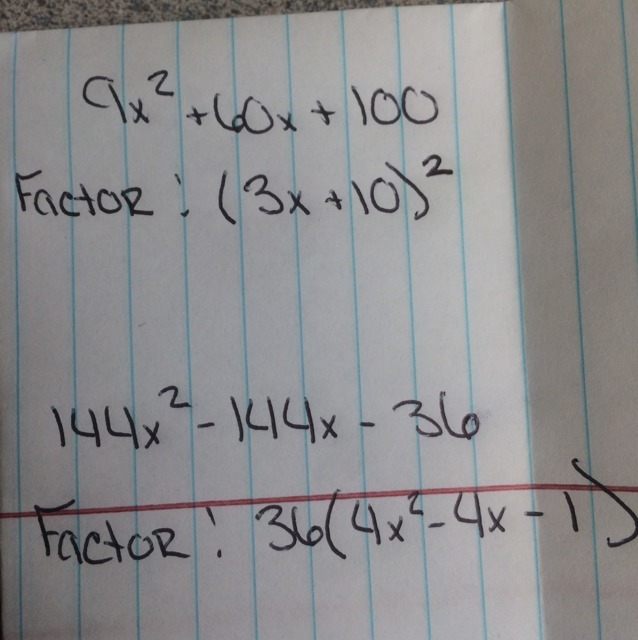 9x² + 60x + 100
Factor: (3x + 10)²
144x² - 144x - 36
Factor: 36(4x² - 4x - 1)